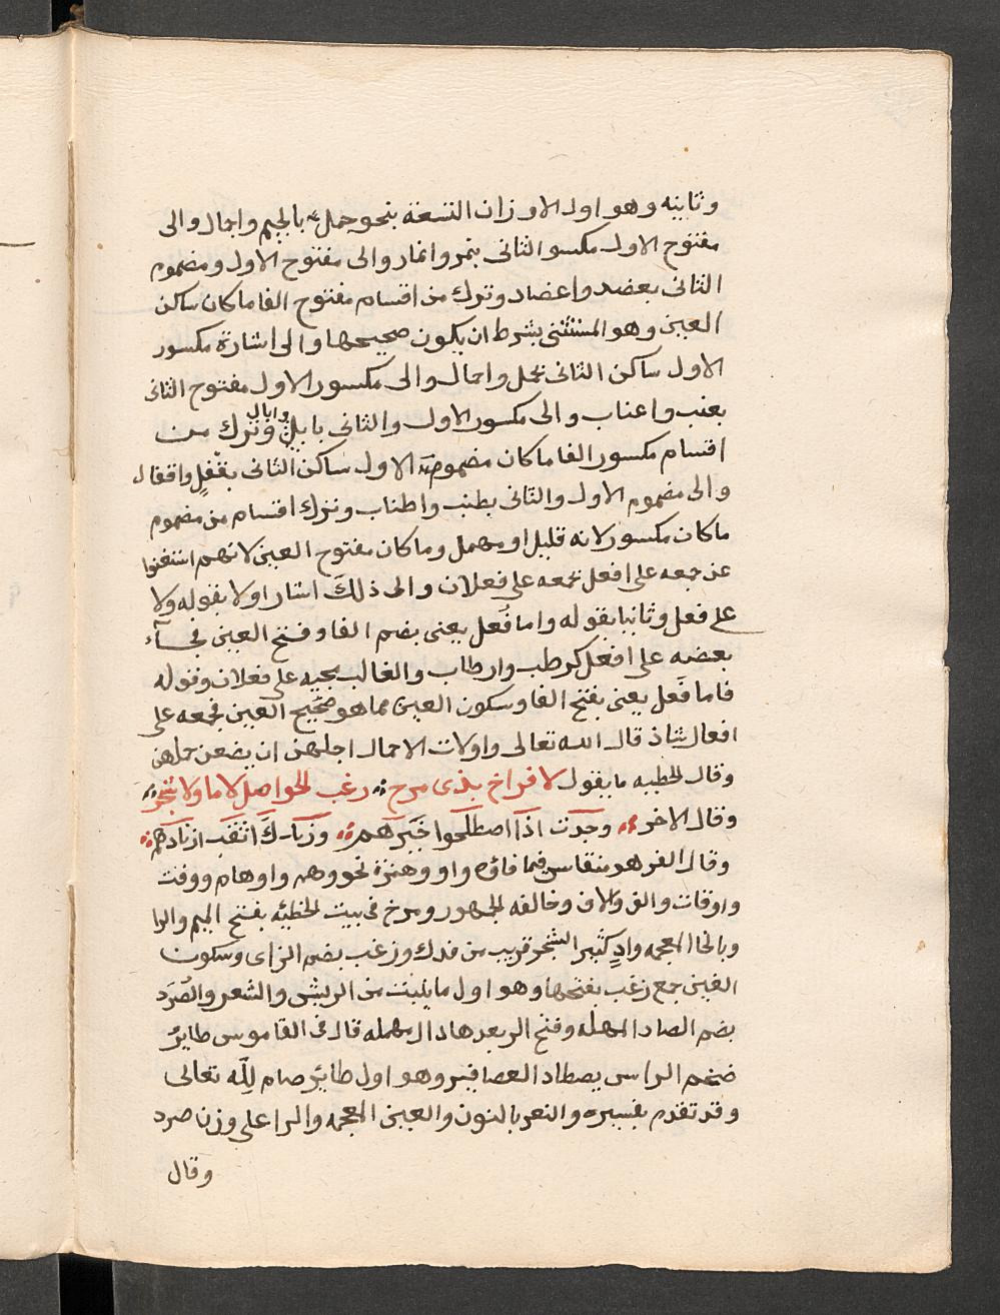 وثانيه وهو اول الاوزان التسعة بنحو جمل بالجيم واجمال والى
مفتوح الاول مكسو الثانى بنمر وانمار والى مفتوح الاول ومضموم
الثانى بعضد واعضاد وترك من اقسام مفتوح الفا ما كان ساكن
العين وهو المستثنى بشرط ان يكون صحيحها والى اشارة مكسور
الاول ساكن الثانى بحمل واحمال والى مكسور الاول مفتوح الثانى
بعنب واعناب والى مكسور الاول والثانى بابل وابال وترك من
اقسام مكسور الفا ما كان مضمومه الاول ساكن الثانى بقفل واقفال
والى مضموم الاول والثانى بطنب واطناب وترك اقسام من مضموم
ما كان مكسور لانه قليل او مهمل وما كان مفتوح العين لانهم استغنوا
عن جمعه على افعل بجمعه على فعلان والى ذلك اشار اولا بقوله ولا
على فعل وثانيا بقوله واما فعل يعنى بضم الفا وفتح العين فجاء
بعضه على افعل كرطب وارطاب والغالب مجيه على فعلان وقوله
فاما فعل يعنى بفتح الفا وسكون العين مما هو صحيح العين فجمعه على
افعال شاذ قال الله تعالى واولات الاحمال اجلهن ان يضعن حملهن
وقال لحطيه ما يقول لافراخ بذى مرخ رغب الحواصل لا ما ولا شجر
وقال الاخر وجدت اذا اصطلحوا خيرهم وزنادك اثقب ازنادهم
وقال الفر هو منقاس فيما فاؤه واو وهمزة نحو وهم واوهام ووقت
واوقات والف والاف وخالفه الجمهور ومرخ فى بيت الحطيئه بفتح الميم والرا
وبالخا المعجمه واد كثير الشجر قريب من فدك وزغب بضم الزاى وسكون
الغين جمع زغب بفتحها وهو اول ما ينبت من الريش والشعر والصرد
بضم الصاد المهمله وفتح الر بعدها دال مهمله قال فى القاموس طاير
ضخم الراس يصطاد العصافير وهو اول طائر صام لله تعالى
وقد تقدم بفسيره والنعر بالنون والعين المعجمه والرا على وزن صرد
وقال